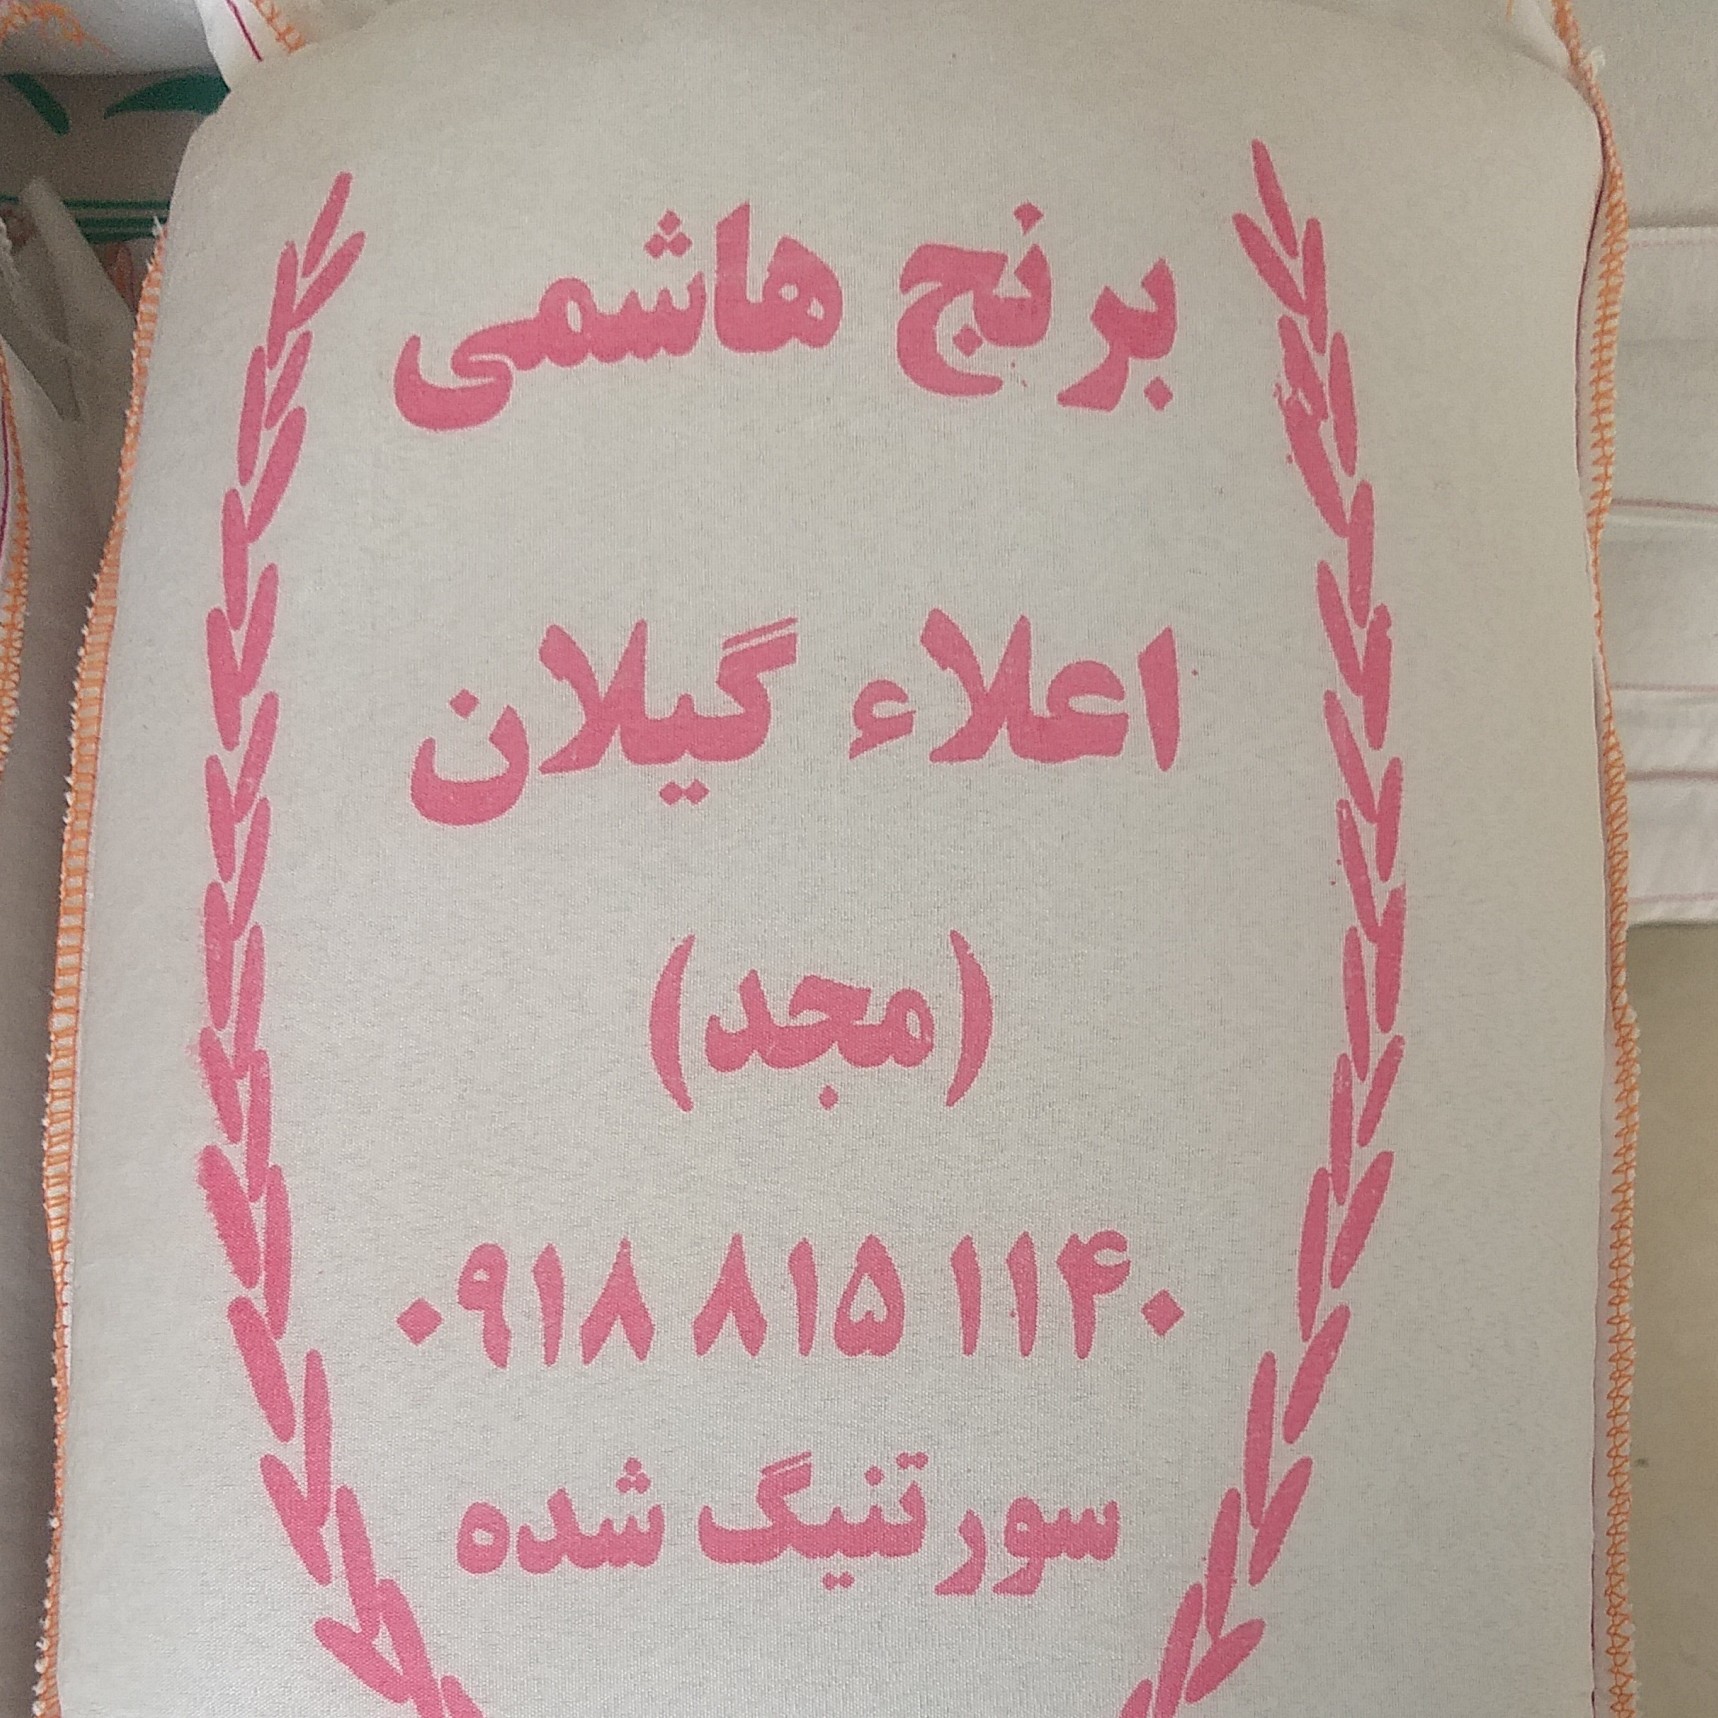 برنج هاشمی
اعلاء گیلان
(مجد)
۰۹۱۸ ۸۱۵ ۱۱۴۰
سورتنیگ شده